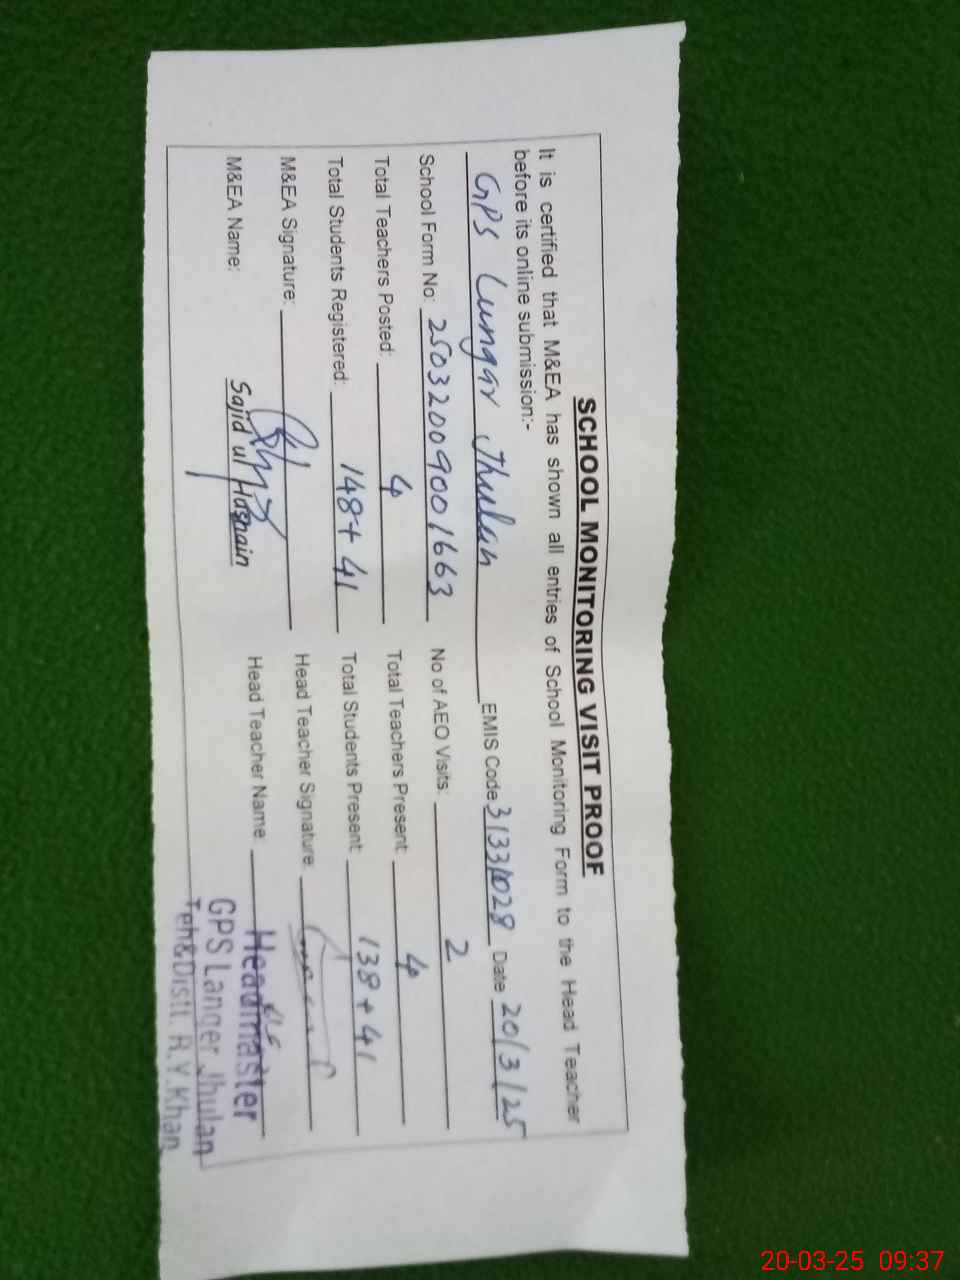 SCHOOL MONITORING VISIT PROOF
It is certified that M&EA has shown all entries of School Monitoring Form to the Head Teacher
before its online submission:-
GPS Lungar Jhulan EMIS Code 31331028 Date 20/3/25
School Form No: 25032009001663 No of AEO Visits: 2
Total Teachers Posted: 4 Total Teachers Present: 4
Total Students Registered: 148+41 Total Students Present: 138+41
M&EA Signature: Head Teacher Signature:
M&EA Name: Sajid ul Hasnain Head Teacher Name:
Headmaster
GPS Langer Jhulan
Teh&Distt. R.Y.Khan
20-03-25 09:37